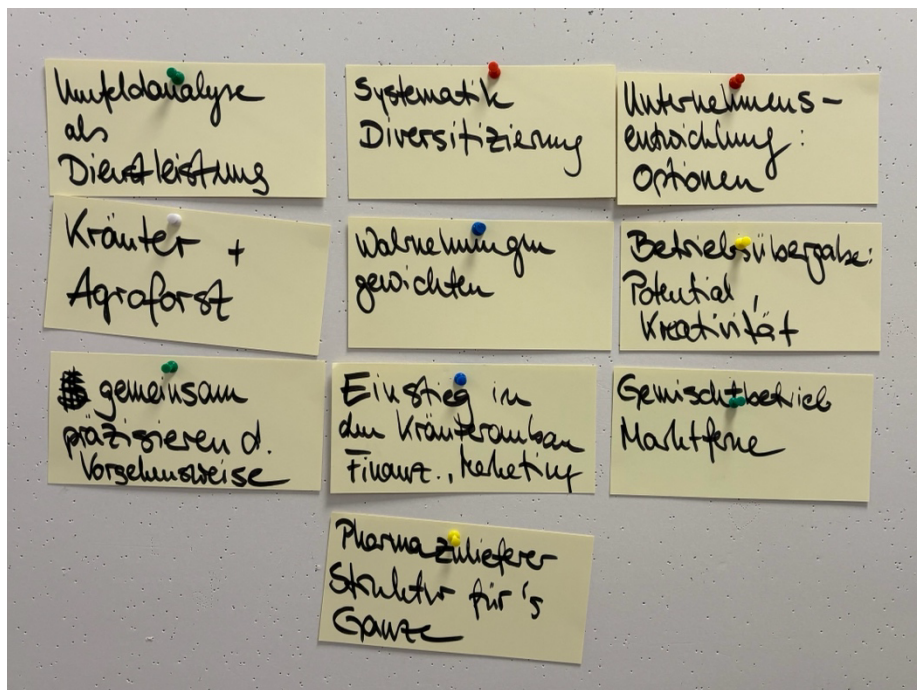 Umfeldanalyse
als
Dienstleistung
Systematik
Diversifizierung
Unternehmens-
entwicklung:
Optionen
Kräuter +
Agroforst
Wahrnehmungen
gewichten
Betriebsübergabe:
Potential,
Kreativität
gemeinsam
präzisieren d.
Vorgehensweise
Einstieg in
den Kräuteranbau
Finanz., Marketing
Gemischtbetrieb
Marktferne
Pharmazulieferer
Struktur für's
Ganze